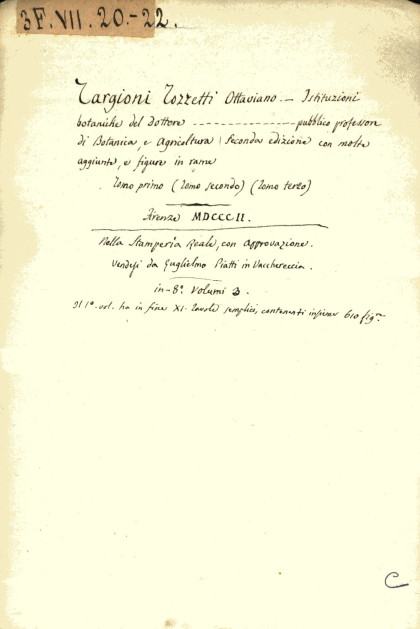 3F.VII.20-22.
Targioni Tozzetti Ottaviano — Istituzioni
botaniche del dottore - - - - - - - - - - - - - - pubblico professore
di Botanica, e Agricoltura | Seconda edizione con molte
aggiunte, e figure in rame
Tomo primo (Tomo secondo) (Tomo terzo)
Firenze MDCCCII.
Nella Stamperia Reale, con approvazione.
Vendesi da Guglielmo Piatti in Vacchereccia.
in-8º Volumi 3.
Il 1º. vol. ha in fine XI. Tavole semplici, contenenti insieme 610 fig.re
C